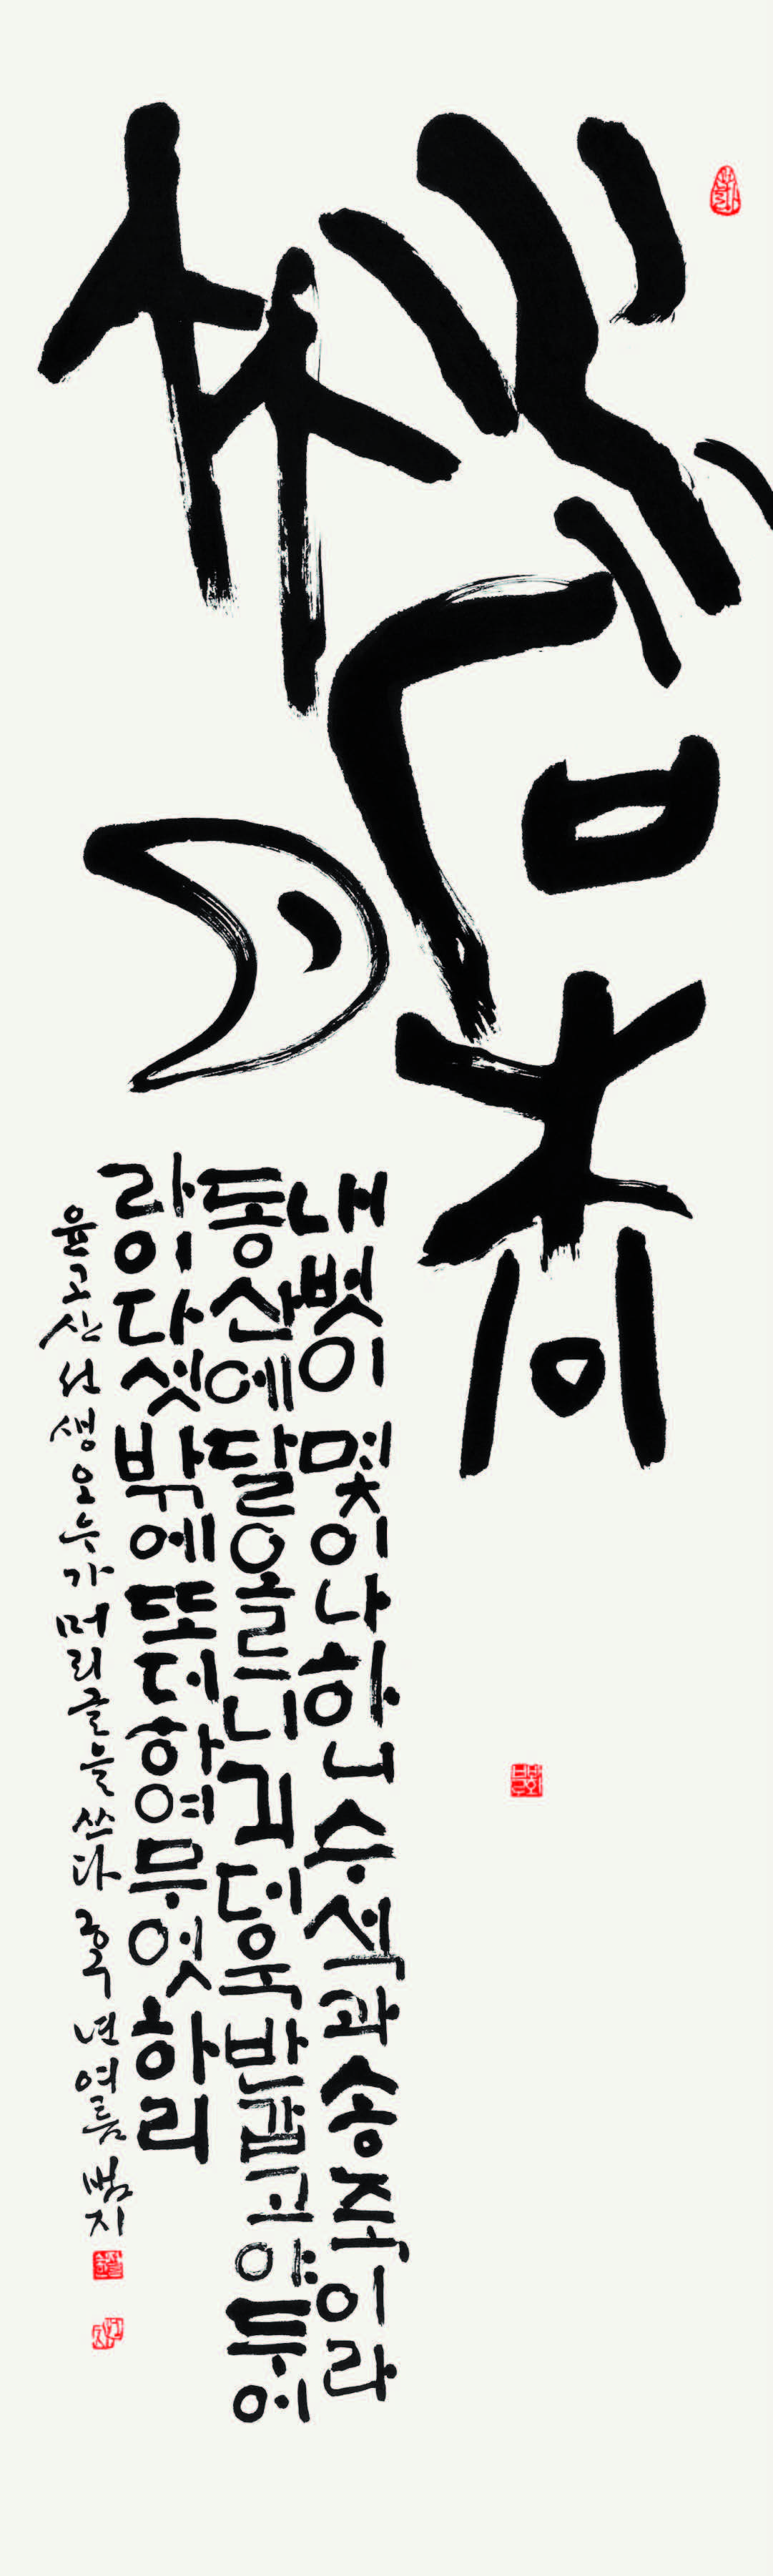 水石松
竹月
내벗이몇이나하니수석과송죽이라
동산에달오르니긔더욱반갑고야두어
라이다섯밖에또더하여무엇하리
윤고산선생오우가머리글을쓰다 년여름범지